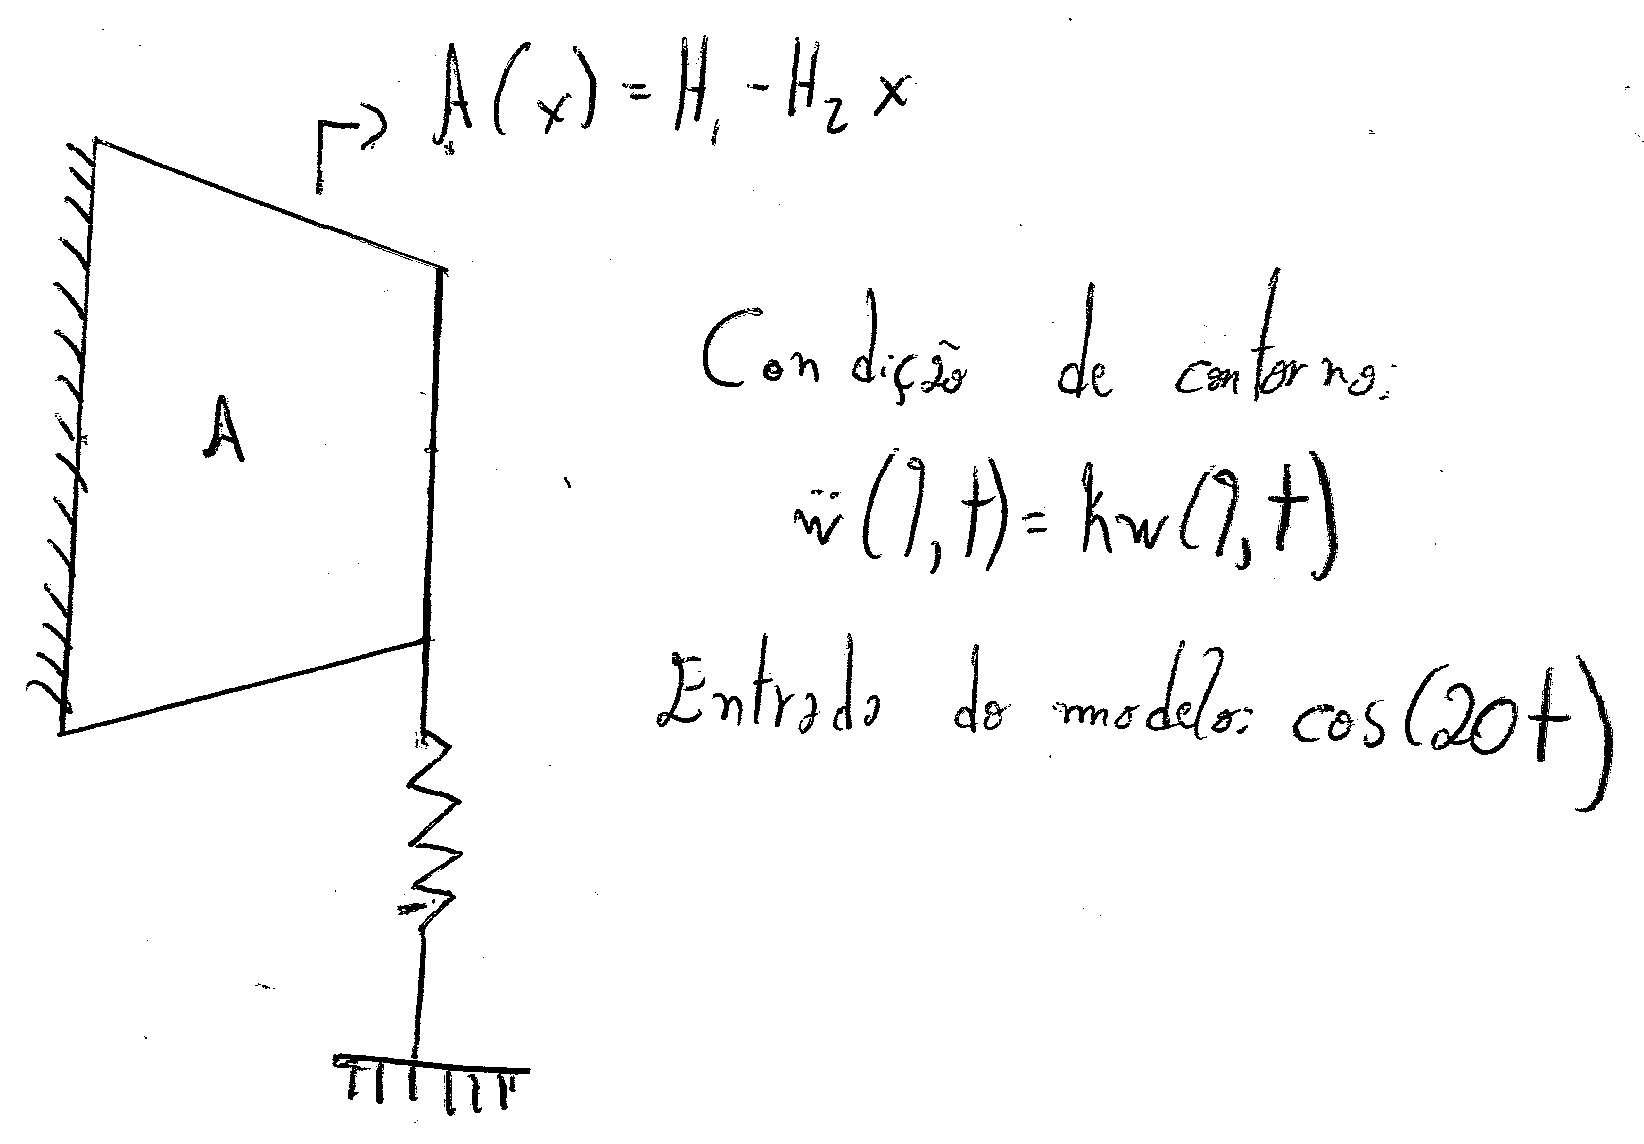 A(x) = H₁ - H₂ x
A
Condição de contorno:
ẅ(1,t) = kw(1,t)
Entrada do modelo: cos(20t)